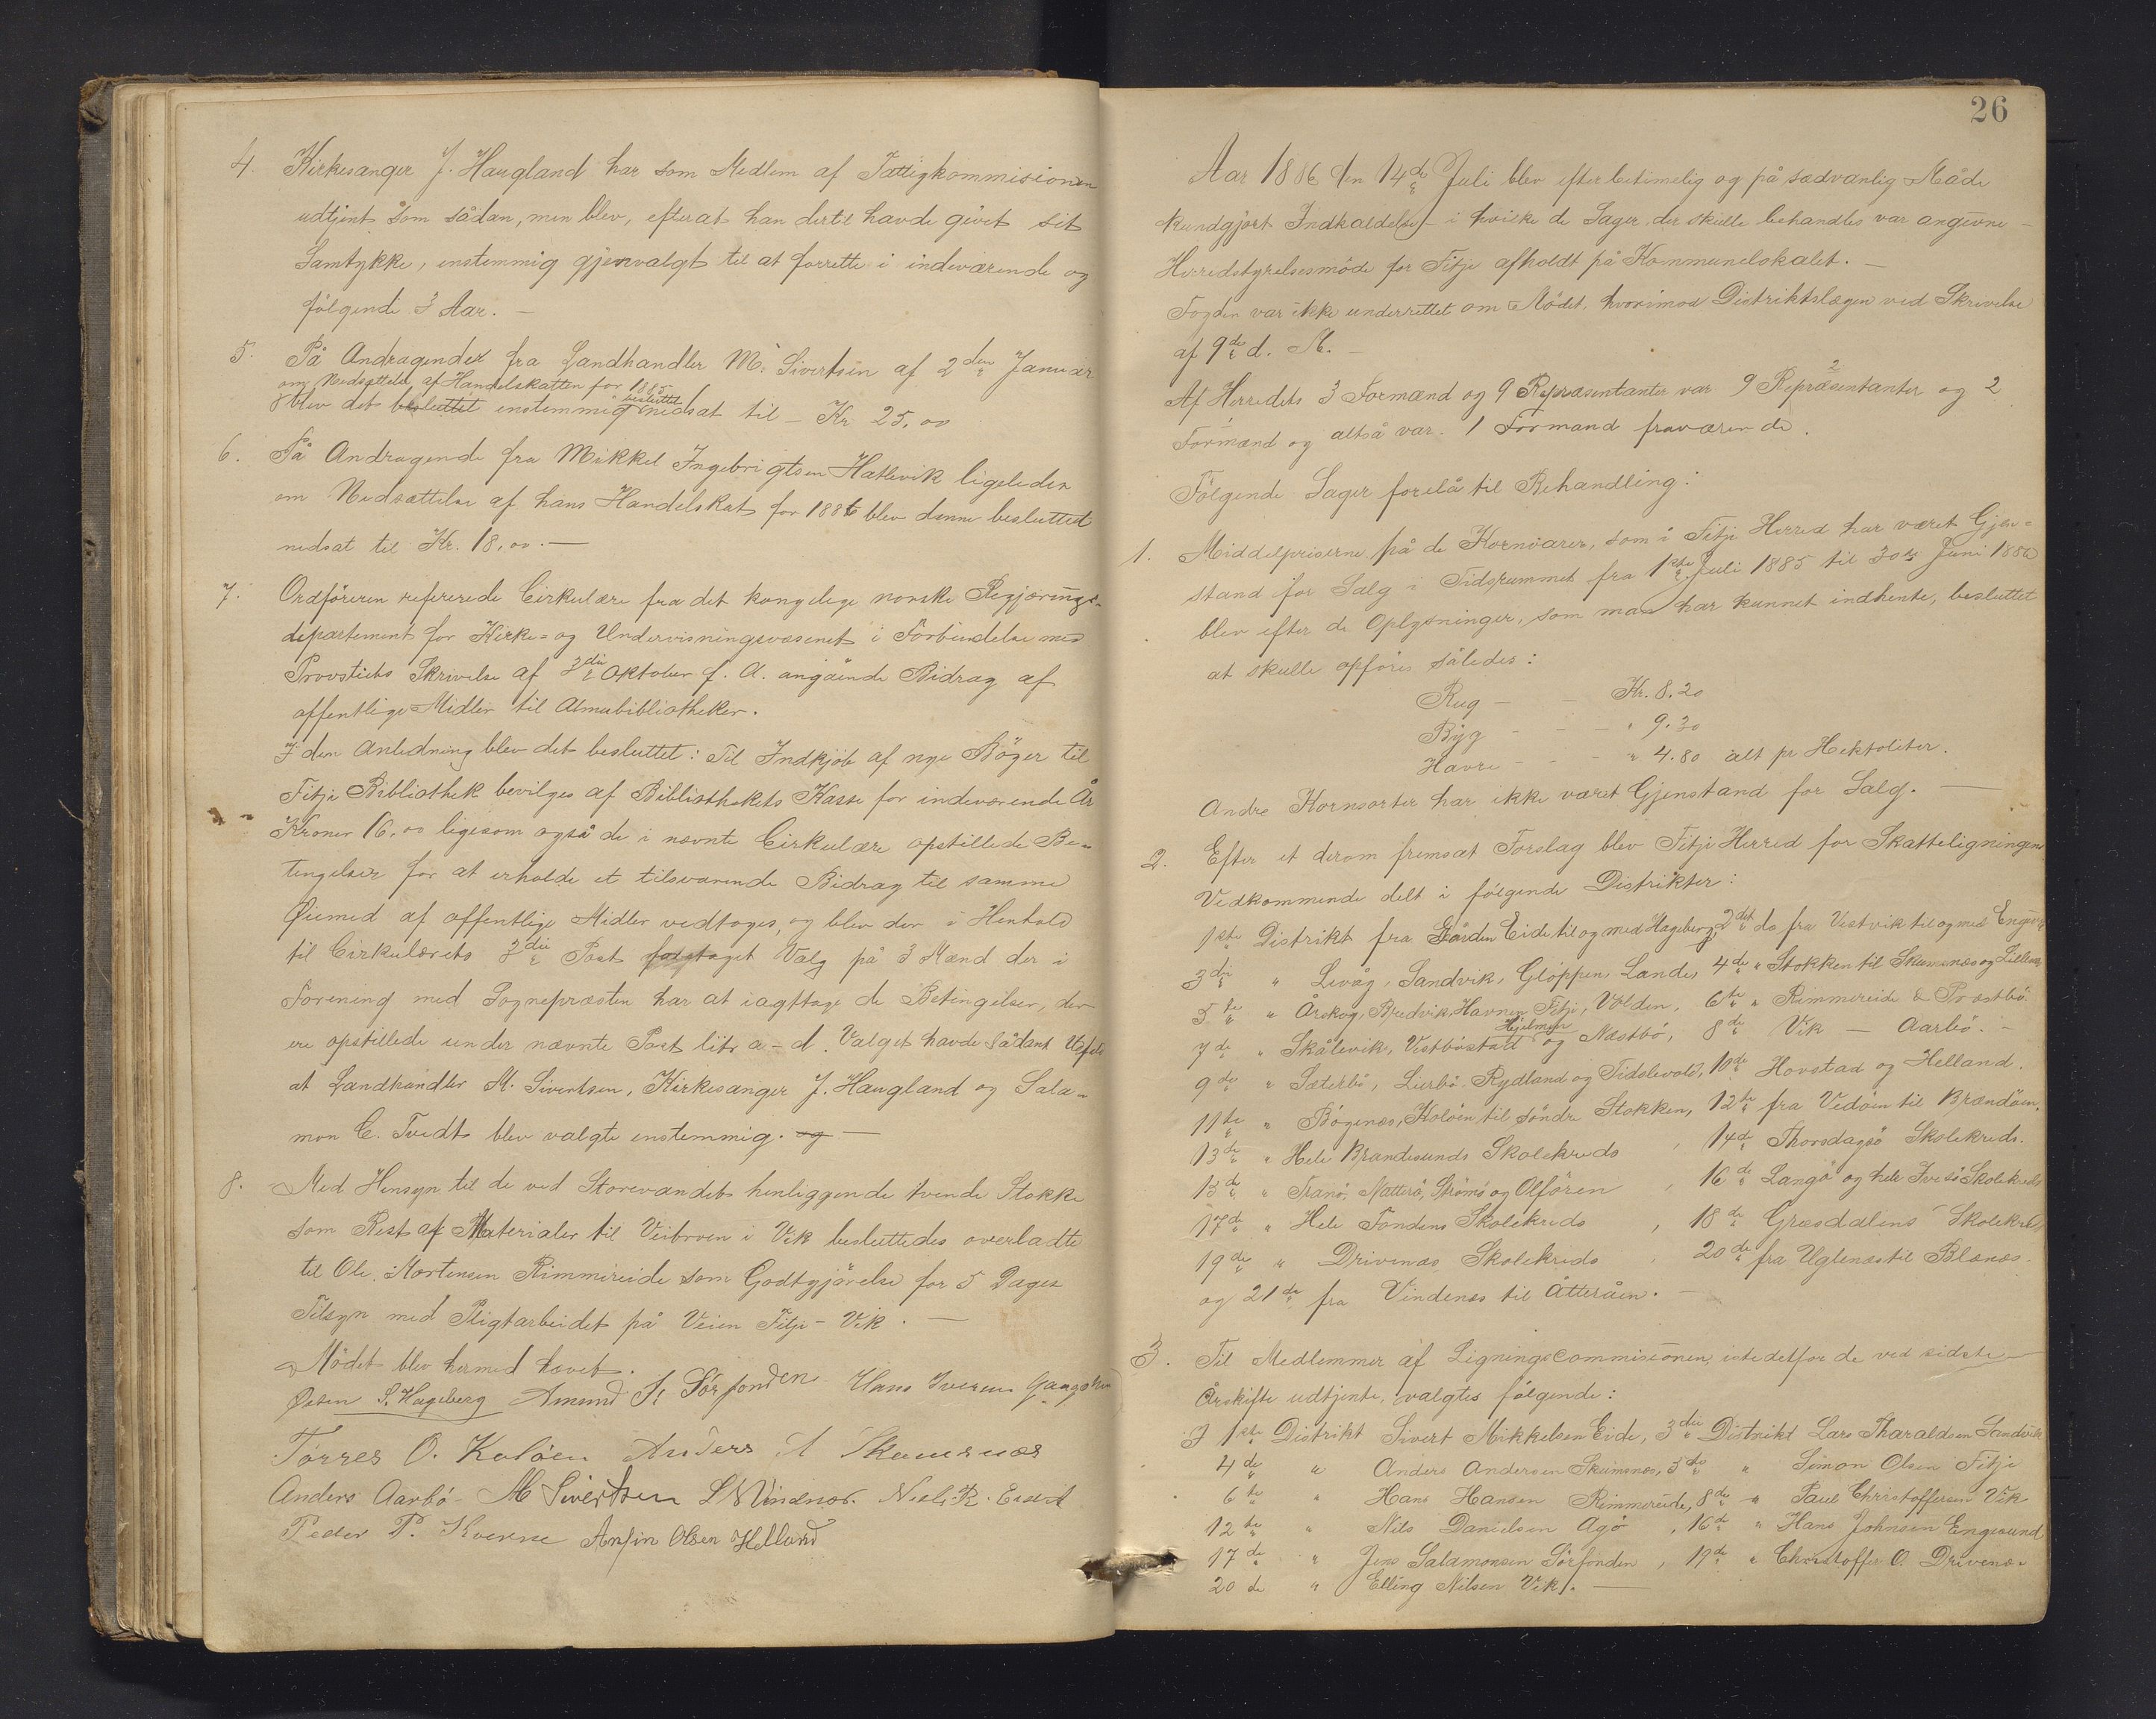 4. Kirkesanger J. Haugland har som Medlem af Fattigkommisionen
udtjent som sådan, men blev, efterat han dertil havde givet sit
Samtykke, enstemmig gjenvalgt til at forrette i indeværende og
følgende 3 Aar. —
5. På Andragender fra Landhandler M. Sivertsen af 2den Januar
om Nedsættelse af Handelskatten for 1885
blev det besluttet enstemmig besluttet nedsat til – Kr 25,00
6. På Andragende fra Mikkel Ingebrigtsen Hatlevik ligeledes
om Nedsættelse af hans Handelskat for 1886 blev denne besluttet
nedsat til Kr. 18,00. —
7. Ordføreren refererede Cirkulære fra det kongelige norske Regjerings-
departement for Kirke- og Undervisningsvæsenet i Forbindelse med
Provstiets Skrivelse af 3die Oktober f. A. angående Bidrag af
offentlige Midler til Almubibliotheker.
I den Anledning blev det besluttet: Til Indkjøb af nye Bøger til
Fitje Bibliothek bevilges af Bibliothekets Kasse for indeværende År
Kroner 16,00 ligesom også de i nævnte Cirkulære opstillede Be-
tingelser for at erholde et tilsvarende Bidrag til samme
Øiemed af offentlige Midler vedtoges, og blev der i Henhold
til Cirkulærets 3die Post foretaget Valg på 3 Mænd der i
Forening med Sognepræsten har at iagttage de Betingelser, der
ere opstillede under nævnte Post litr a-d. Valget havde sådant Udfald
at Landhandler M. Sivertsen, Kirkesanger J. Haugland og Sala-
mon C. Tvedt blev valgte enstemmig. og —
8. Med Hensyn til de ved Storevandet henliggende tvende Stokke
som Rest af Materialer til Veibroen i Vik besluttedes overladte
til Ole Mortensen Rimmereide som Godtgjørelse for 5 Dages
Tilsyn med Pligtarbeidet på Veien Fitje – Vik. —
Mødet blev hermed hævet.
Østen S. Hageberg Amund J. Sørfonden Hans Iversen
Tørres O. Koløen Anders A Skumsnæs
Anders Aarbø – M Sivertsen L N Vindnæs. Niels R. Eide
Peder P. Kverne Anfin Olsen Helland
26
Aar 1886 den 14de Juli blev efter betimelig og på sædvanlig Måde
kundgjort Indkaldelse – i hvilke de Sager, der skulle behandles var angivne –
Herredstyrelsesmøde for Fitje afholdt på Kommunelokalet. —
Fogden var ikke underrettet om Mødet, hvorimod Distriktslægen ved Skrivelse
af 9de d. M. —
Af Herredets 3 Formænd og 9 Repræsentanter var 9 Repræsentanter og 2
Formænd og altså var 1 Formand fraværende.
Følgende Sager forelå til Behandling:
1. Middelpriserne på de Kornvarer, som i Fitje Herred har været Gjen-
stand for Salg i Tidsrummet fra 1ste Juli 1885 til 30te Juni 1886
blev efter de Oplysninger, som man har kunnet indhente, besluttet
at skulle opføres således:
Rug – – Kr. 8.20
Byg – – – " 9.30
Havre – – – " 4.80 alt pr Hektoliter.
Andre Kornsorter har ikke været Gjenstand for Salg. —
2. Efter et derom fremsat Forslag blev Fitje Herred for Skatteligningens
Vedkommende delt i følgende Distrikter:
1ste Distrikt fra Gården Eide til og med Hageberg, 2det do fra Vestvik til og med
3die " Levåg, Sandvik, Gloppen, Landes 4de " Stokken til Skumsnæs og
5te " Årskog, Bredvik, Havnen Fitje, Volden, 6te " Rimmereide & Prestbø
7de " Skålevik, Vestbøstatt Hjelmen og Næstbø, 8de Vik – Aarbø. –
9de " Sæterbø, Lurbø, Rydland og Tidslevold, 10de Hovstad og Helland.
11te " Bøgenæs, Koløen til søndre Stokken, 12te fra Vedøen til Brandøen.
13de " Hele Brandesunds Skolekreds , 14de Thorsdagsø Skolekreds.
15de " Tranø, Nattersø, Strømø og Olføren , 16de Langø og hele Ivesø Skolekreds
17de " Hele Fondens Skolekreds , 18de Græsdalens Skolekreds
19de " Drivenæs Skolekreds , 20de fra Uglenæs til Blænæs.
og 21de fra Vindenes til Åtteråen. —
3. Til Medlemmer af Ligningscommisionen istedetfor de ved sidste
Årskifte udtjente, valgtes følgende:
I 1ste Distrikt Sivert Mikkelsen Eide, 3die Distrikt Lars Tharaldsen Sandvik
4de " Anders Andersen Skumsnæs, 5te " Simon Olsen Fitje
6te " Hans Hansen Rimmereide, 8de " Paul Christoffersen Vik
12te " Nils Danielsen Agø , 16de " Hans Johnsen Engesund
17de " Jens Salamonsen Sørfonden , 19de " Christoffer O. Drivenæs
20de " Elling Nilsen Vik. —